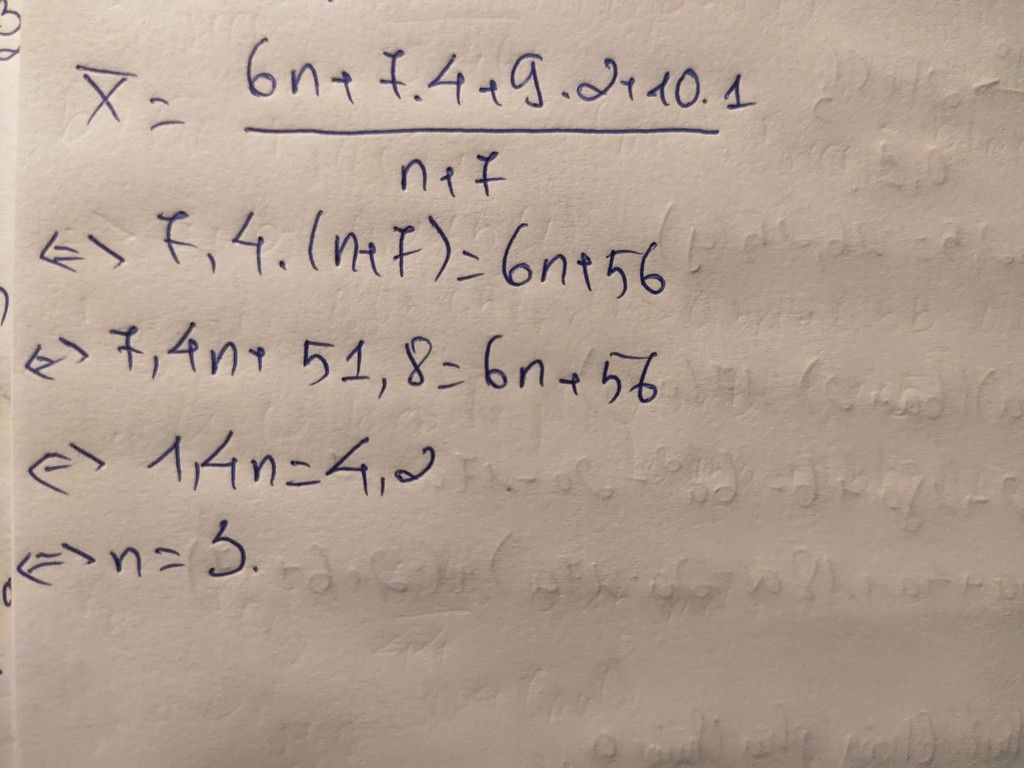 X̄ = (6n + 7.4 + 9.2 + 10.1) / (n + 7)
<=> 7,4.(n+7) = 6n + 56
<=> 7,4n + 51,8 = 6n + 56
<=> 1,4n = 4,2
<=> n = 3.